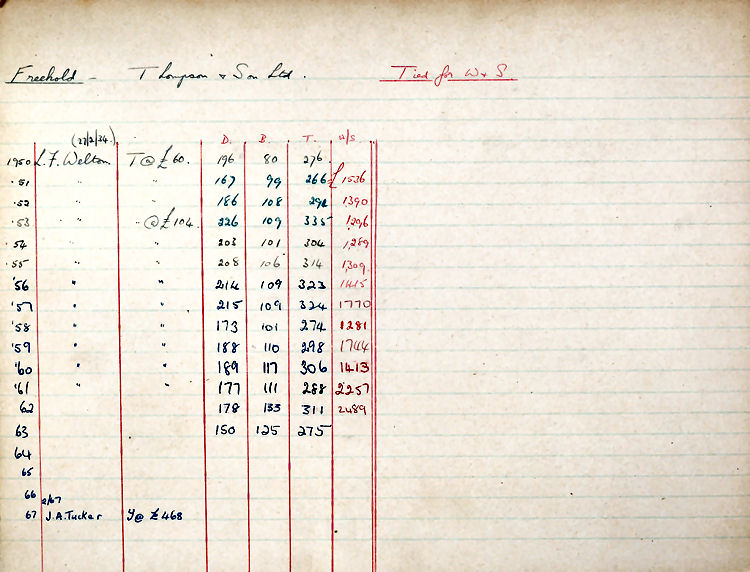 Freehold - Thompson & Son Ltd. Tied for W & S.
(22/2/34.) D. B. T. W/S.
1950 L.F. Welton T @ £60. 196 80 276
.51 " " 167 99 266 £1536
.52 " " 186 108 294 1390
.53 " " @ £104. 226 109 335 1296
.54 " " 203 101 304 1,289
.55 " " 208 106 314 1,309.
'56 " " 214 109 323 1415
'57 " " 215 109 324 1770
'58 " " 173 101 274 1281
'59 " " 188 110 298 1744
'60 " " 189 117 306 1413
'61 " " 177 111 288 2257
62 178 133 311 2489
63 150 125 275
64
65
66 2/67
67 J.A. Tucker Y @ £468